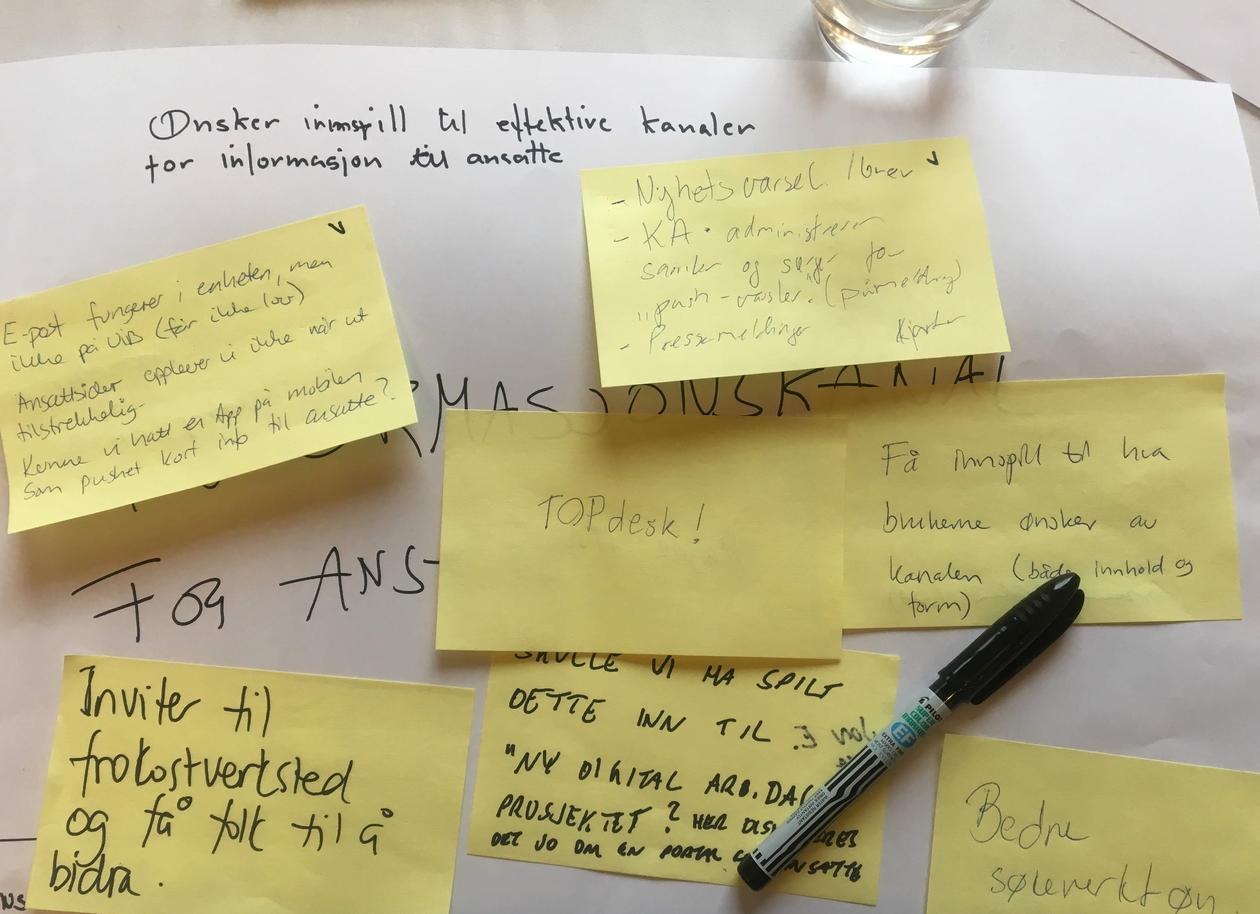 Ønsker innspill til effektive kanaler
for informasjon til ansatte
- Nyhetsvarsel. /brev
- KA. administrerer
samler og sørger for
"push-varsler". (påmelding)
- Pressemeldinger
E-post fungerer i enheten, men
ikke på UiB (får ikke lov)
Ansattsider opplever vi ikke når ut
tilstrekkelig.
Kunne vi hatt en App på mobilen
som pushet kort info til ansatte?
RMASJONSKANAL
FOR ANS
TOPdesk!
Få innspill til hva
brukerne ønsker av
kanalen (både innhold og
form)
Inviter til
frokostverksted
og få folk til å
bidra.
SKULLE VI HA SPILT
DETTE INN TIL
"NY DIGITAL ARB.DA
PROSJEKTET? HER
DET JO OM EN PORTAL
Bedre
søkeverktøy